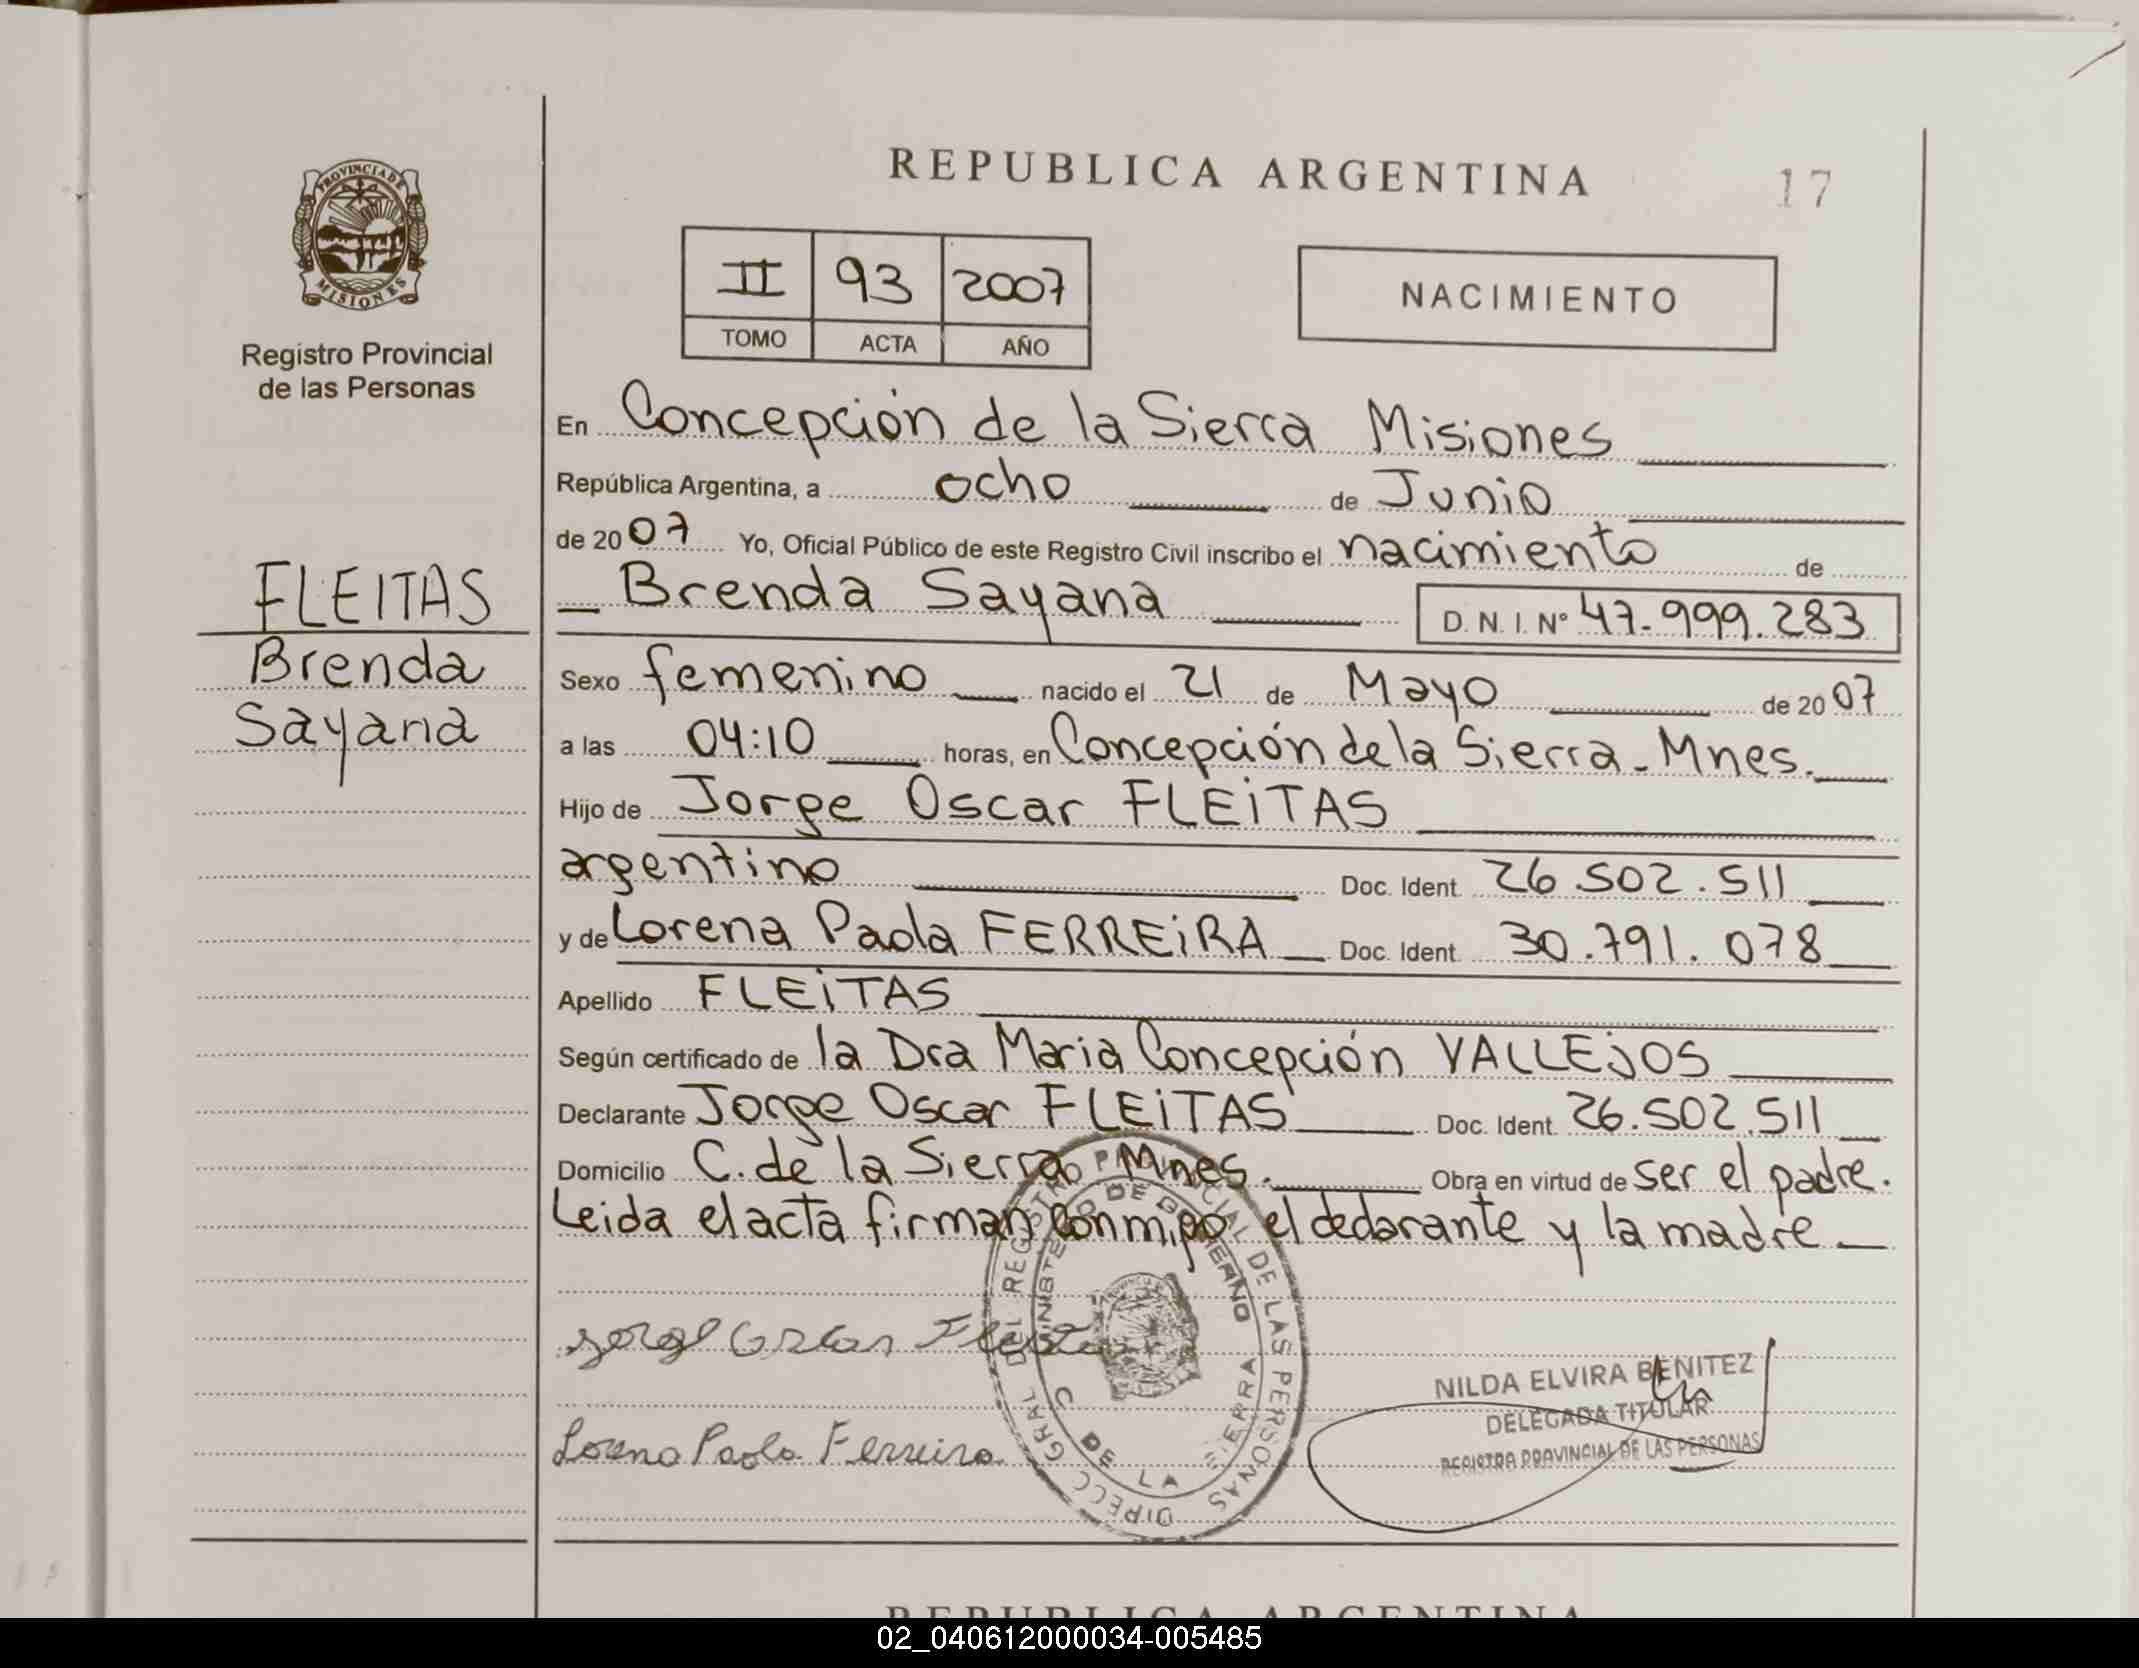 REPUBLICA ARGENTINA
17
PROVINCIA DE
MISIONES
Registro Provincial
de las Personas
II 93 2007
TOMO ACTA AÑO
NACIMIENTO
En Concepción de la Sierra Misiones
República Argentina, a ocho de Junio
de 2007 Yo, Oficial Público de este Registro Civil inscribo el nacimiento de
Brenda Sayana D. N. I. Nº 47.999.283
FLEITAS
Brenda
Sayana
Sexo femenino nacido el 21 de Mayo de 2007
a las 04:10 horas, en Concepción de la Sierra - Mnes.
Hijo de Jorge Oscar FLEiTAS
argentino Doc. Ident. 26.502.511
y de Lorena Paola FERREiRA Doc. Ident. 30.791.078
Apellido FLEiTAS
Según certificado de la Dra Maria Concepción VALLEjOS
Declarante Jorge Oscar FLEiTAS Doc. Ident. 26.502.511
Domicilio C. de la Sierra Mnes. Obra en virtud de ser el padre.
Leida el acta firman conmigo el declarante y la madre
Jorge Oscar Fleitas
Lorena Paola Ferreira
DIRECC GRAL DEL REGISTRO PROVINCIAL DE LAS PERSONAS
MINISTERIO DE GOBIERNO
C DE LA SIERRA
NILDA ELVIRA BENITEZ
DELEGADA TITULAR
REGISTRO PROVINCIAL DE LAS PERSONAS
REPUBLICA ARGENTINA
02_040612000034-005485